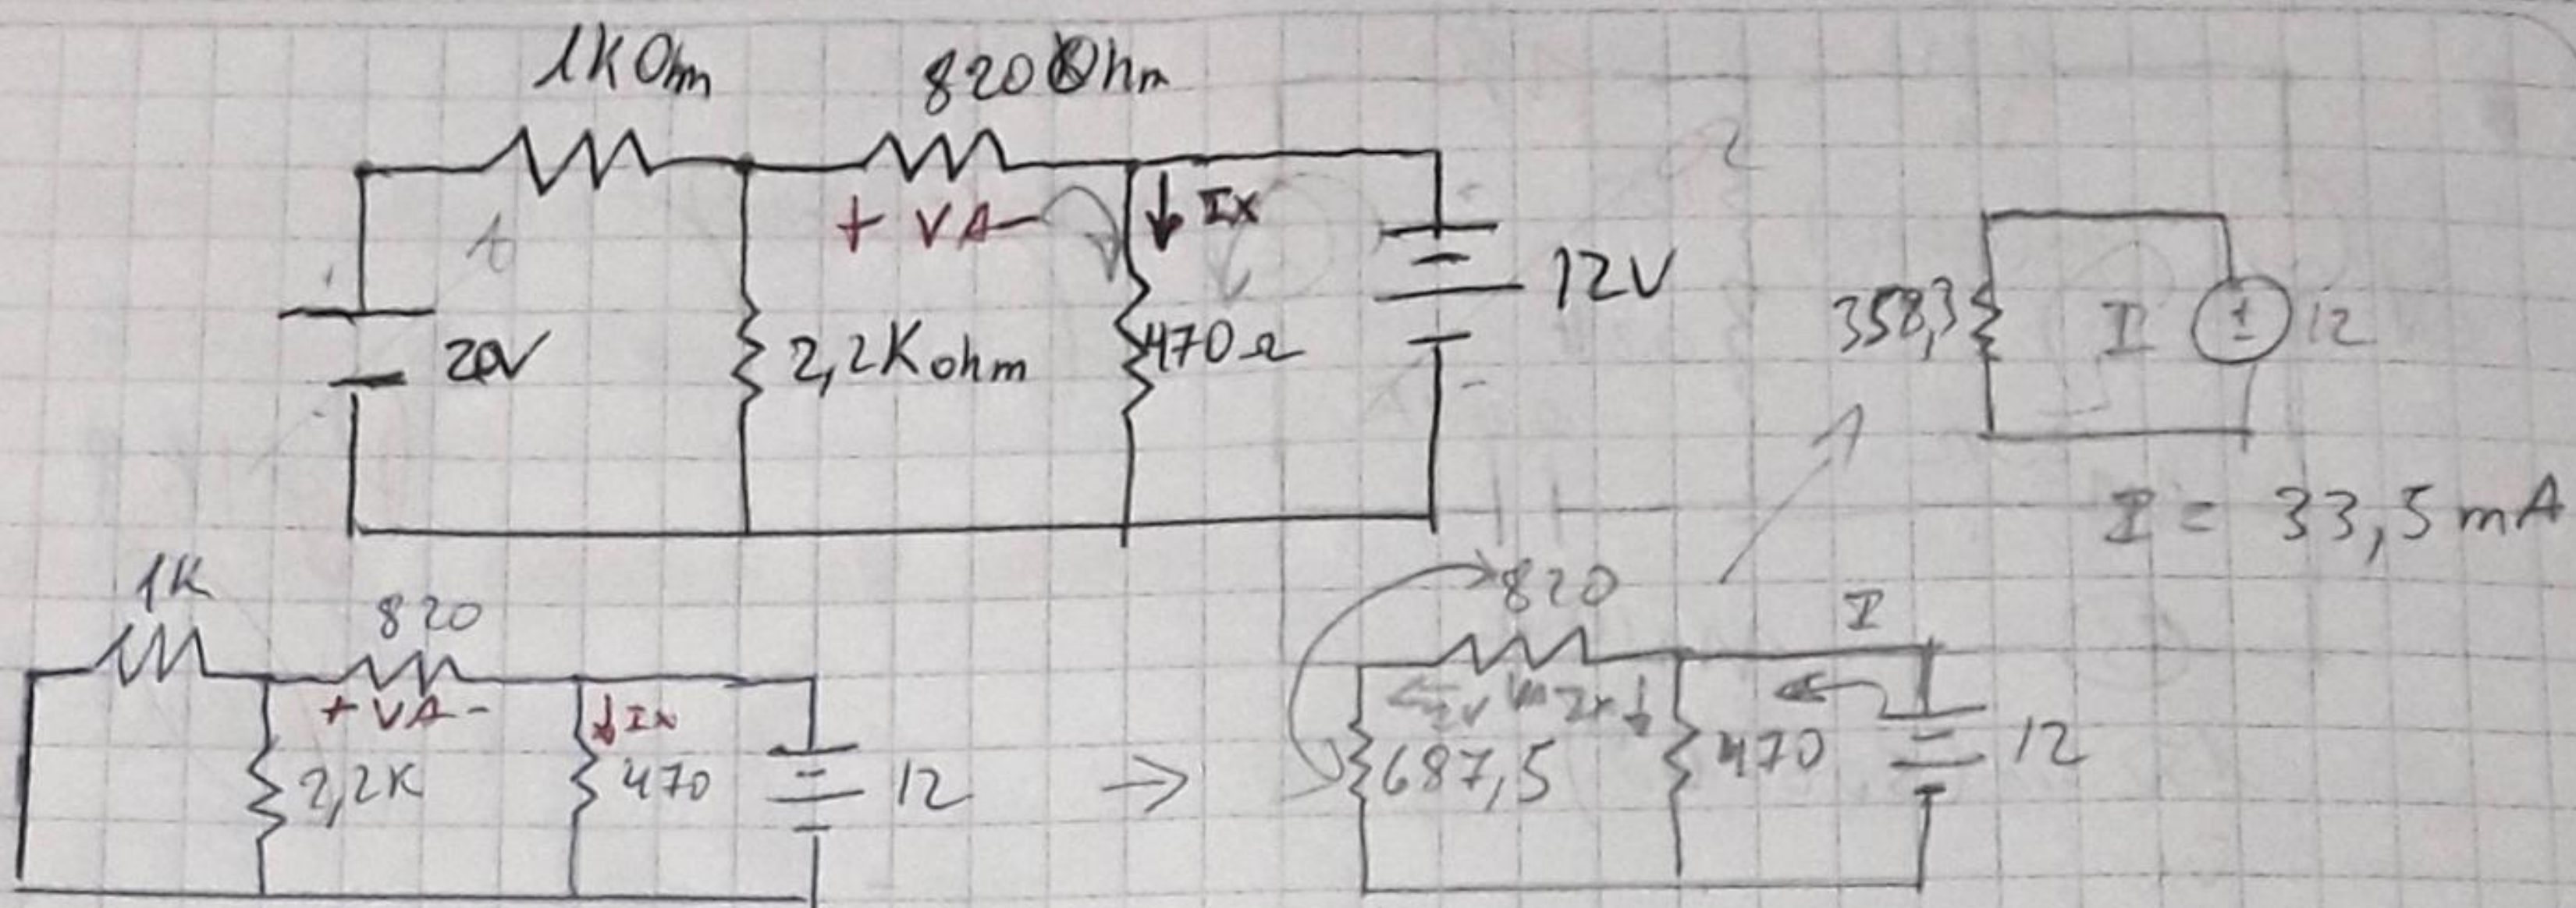 1K Ohm
820 Ohm
+ VA -
Ix
20V
2,2K ohm
470Ω
12V
358,3
I
±
12
I = 33,5 mA
1K
820
+ VA -
Ix
2,2K
470
12
820
I
Ix
687,5
470
12